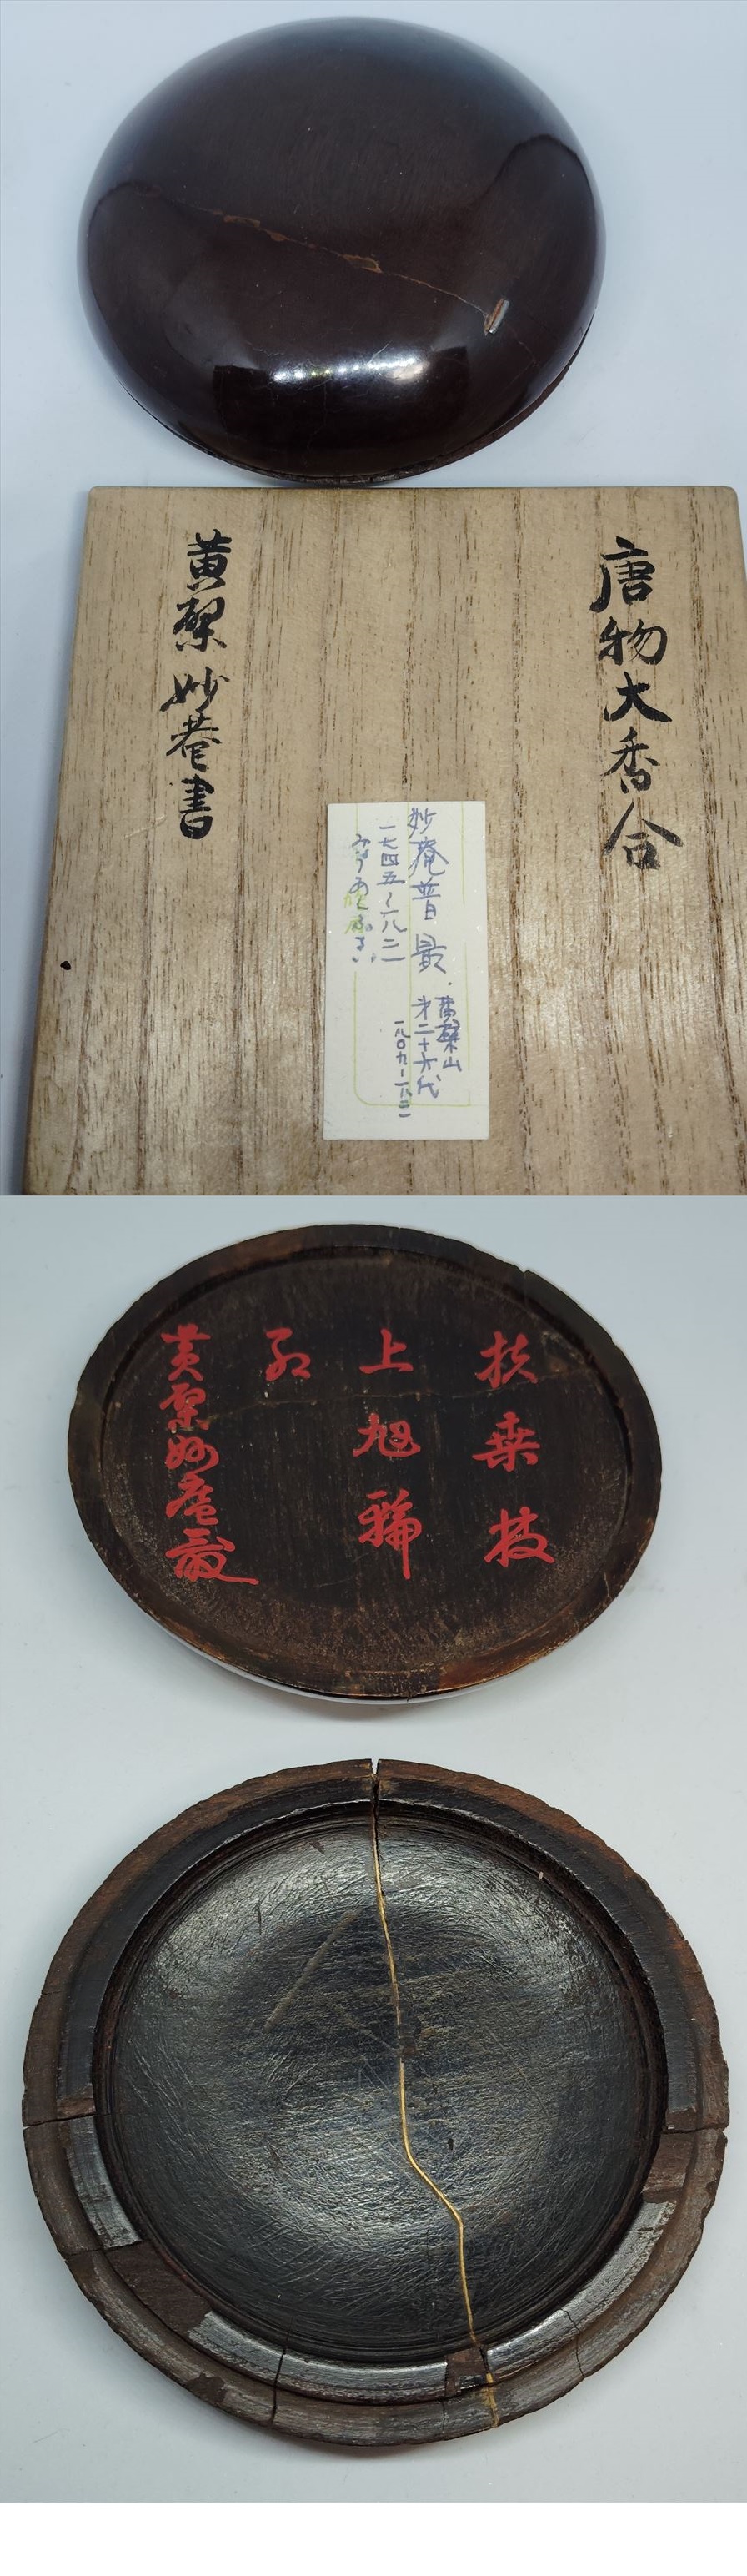 唐物大香合
黄檗妙菴書
妙庵普最
一七四五〜一八二一
みょうあんふさい
黄檗山
第二十六代
一八〇九-一八二一
扶桑枝
上旭輪
紅
黄檗妙菴